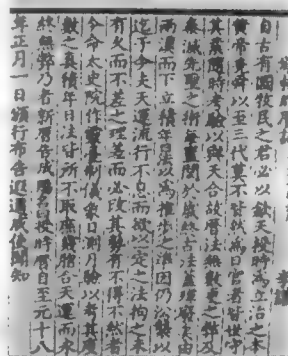 自古有國牧民之君必以欽天授時為立治之本
黃帝堯舜以至三代莫不皆然為日官者皆世守
其業隨時考驗以與天合故曆法無數更之弊及
秦滅先聖之術每置閏於歲終古法蓋殫廢矣由
兩漢而下立積年日法以為推步之準因仍沿襲以
迄于今夫天運流行不息而欲以一定之法拘之未
有久而不差之理差而必改其勢有不得不然者
今命太史院作靈臺制儀象日測月驗以考其度
數之真積年日法皆所不取庶幾脗合天運而永
終無弊乃者新曆告成賜名曰授時曆自至元十八
年正月一日頒行布告遐邇咸使聞知